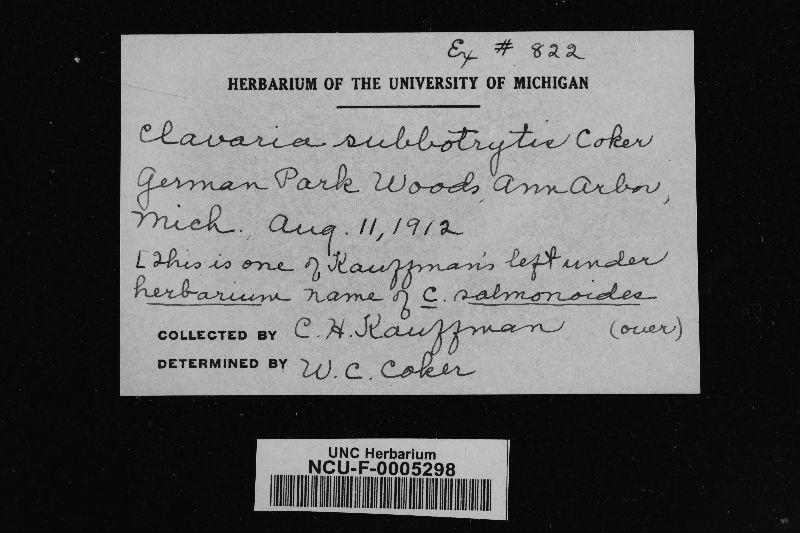 Ex # 822
HERBARIUM OF THE UNIVERSITY OF MICHIGAN
Clavaria subbotrytis Coker
German Park Woods, Ann Arbor,
Mich., Aug. 11, 1912
[This is one of Kauffman's left under
herbarium name of C. salmonoides
COLLECTED BY C. H. Kauffman (over)
DETERMINED BY W. C. Coker
UNC Herbarium
NCU-F-0005298